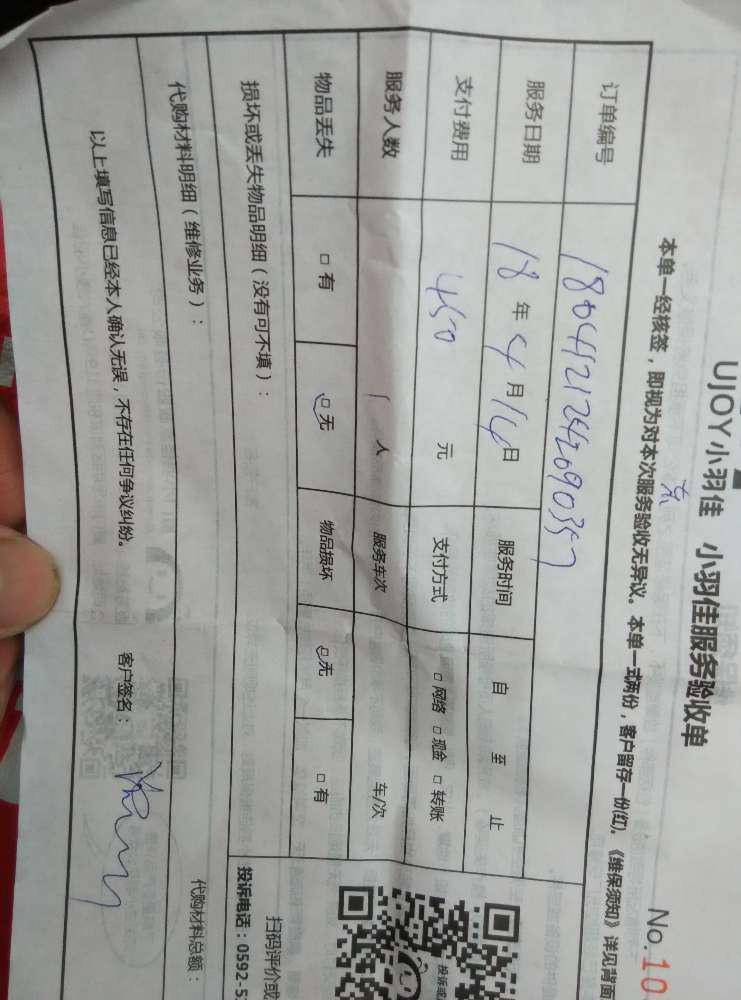 UJOY小羽佳 小羽佳服务验收单
No.10
本单一经核签，即视为对本次服务验收无异议。本单一式两份，客户留存一份(红)。《维保须知》详见背面
订单编号
服务日期 18 年 4 月 14 日 服务时间 自 至 止
支付费用 450 元 支付方式 □ 网络 □ 现金 □ 转账
服务人数 1 人 服务车次 车/次
物品丢失 □ 有 □ 无 物品损坏 □ 无 □ 有
损坏或丢失物品明细（没有可不填）：
扫码评价或
投诉电话：0592-5
代购材料明细（维修业务）： 代购材料总额：
以上填写信息已经本人确认无误，不存在任何争议纠纷。 客户签名：